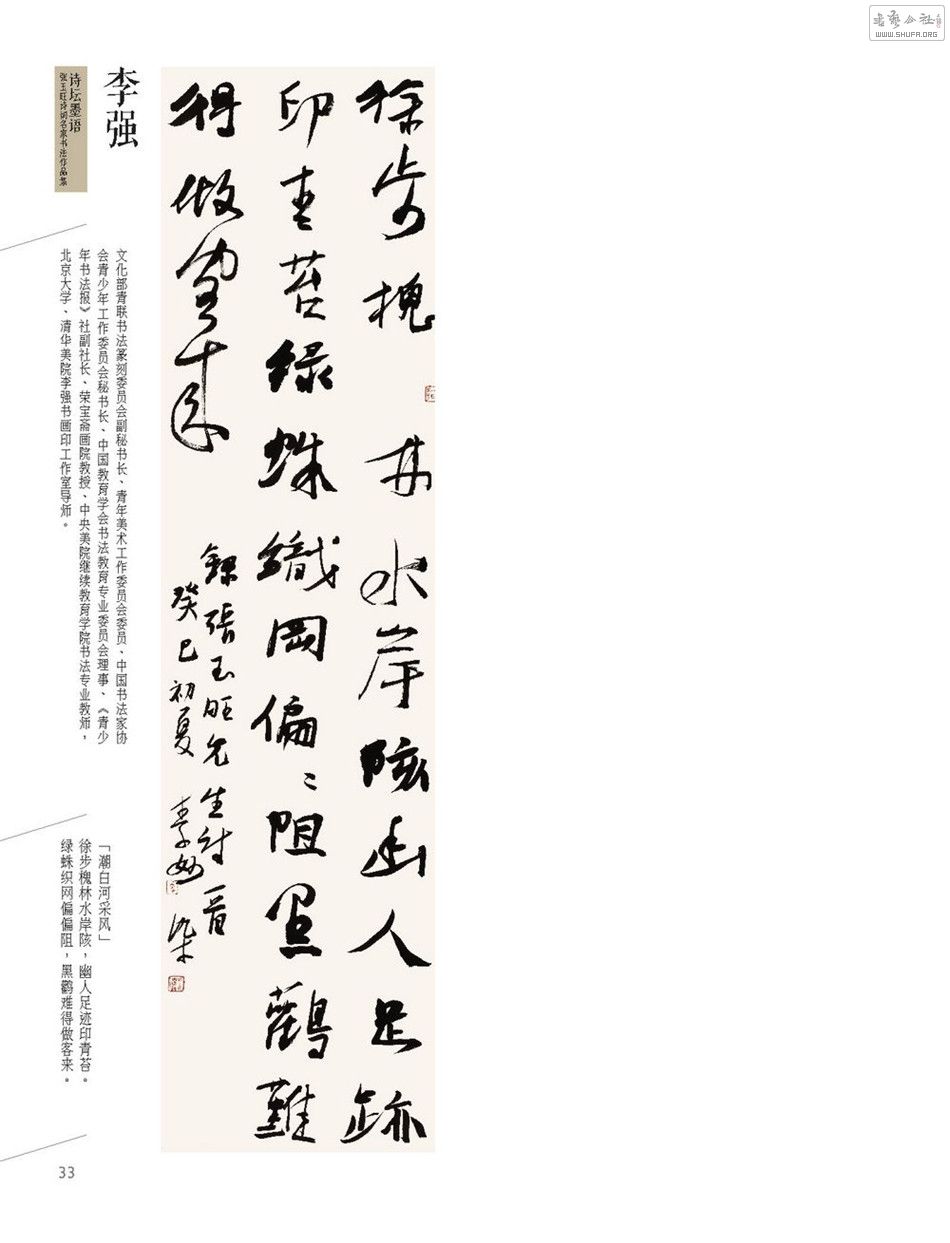 书艺公社
WWW.SHUFA.ORG
徐步槐林水岸陔幽人足跡
印青苔绿蛛織网偏〻阻黑鸛難
得做客来
録張玉旺先生诗一首
癸巳初夏 李强 染
李强
诗坛墨语
张玉旺诗词名家书法作品集
文化部青联书法篆刻委员会副秘书长、青年美术工作委员会委员、中国书法家协
会青少年工作委员会秘书长、中国教育学会书法教育专业委员会理事、《青少
年书法报》社副社长、荣宝斋画院教授、中央美院继续教育学院书法专业教师，
北京大学、清华美院李强书画印工作室导师。
「潮白河采风」
徐步槐林水岸陔，幽人足迹印青苔。
绿蛛织网偏偏阻，黑鹳难得做客来。
33